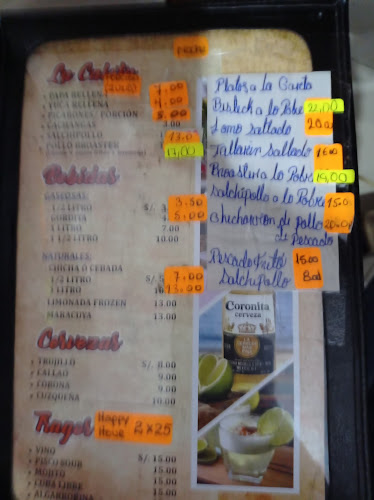 MENU
PAPA RELLENA 7.00
YUCA RELLENA 7.00
PICARONES/ PORCIÓN 8.00
CACHANGAS 3.00
SALCHIPOLLO 13.0
POLLO BROASTER 17,00
Bebidas
GASEOSAS:
1/2 LITRO S/. 3.50
GORDITA 5.00
1 LITRO 7.00
1 1/2 LITRO 10.00
NATURALES:
CHICHA Ó CEBADA
1/2 LITRO S/. 7.00
1 LITRO 13.00
LIMONADA FROZEN 13.00
MARACUYA 13.00
Cervezas
TRUJILLO S/. 8.00
CALLAO 9.00
CORONA 9.00
CUZQUEÑA 10.00
Tragos Happy Hour 2x25
VINO
PISCO SOUR S/. 15.00
MOJITO 15.00
CUBA LIBRE 15.00
ALGARROBINA
Platos a la Carta
Bisteck a lo Pobre 22,00
Lomo Saltado 20.00
Tallarin Saltado
a lo Pobre 19,00
Salchipollo a lo Pobre 15.00
Chicharron de pollo
de Pescado
Pescado Frito 15.00
Salchipollo 8.00
Coronita
CERVEZA